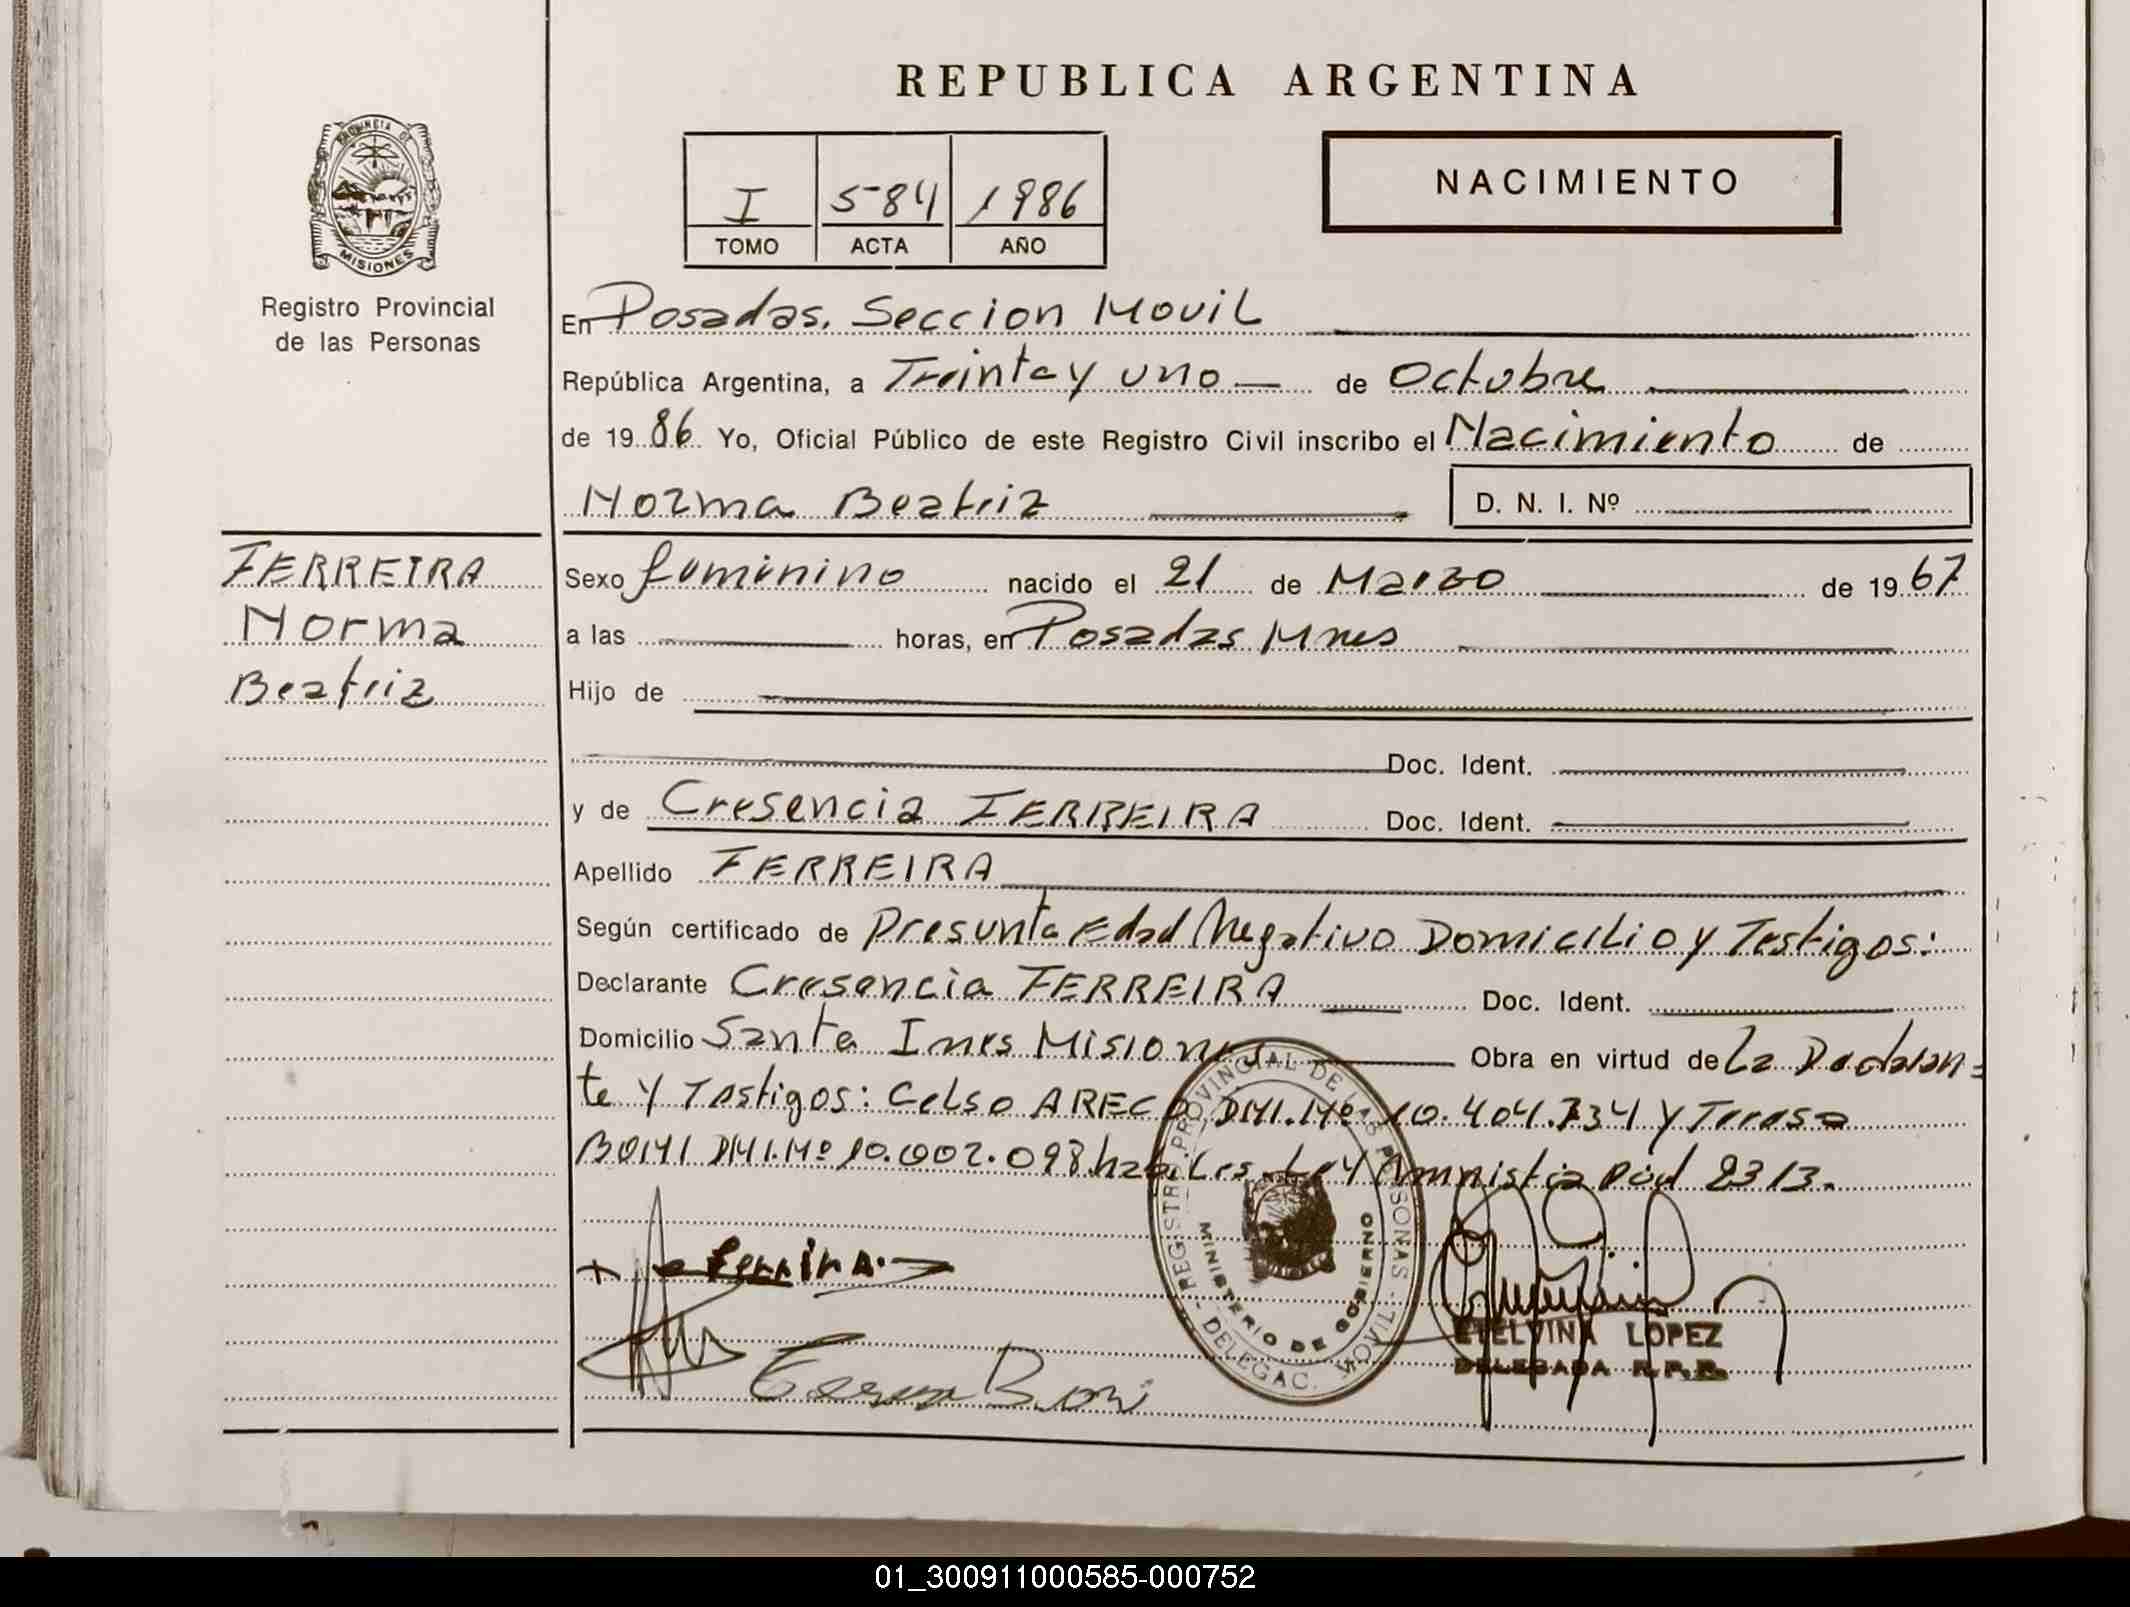 REPUBLICA ARGENTINA
PROVINCIA DE MISIONES
Registro Provincial
de las Personas
I 584 1986
TOMO ACTA AÑO
NACIMIENTO
En Posadas. Seccion Movil
República Argentina, a Treinta y uno de Octubre
de 1986 Yo, Oficial Público de este Registro Civil inscribo el Nacimiento de
Norma Beatriz D. N. I. Nº
FERREIRA
Norma
Beatriz
Sexo femenino nacido el 21 de Marzo de 1967
a las horas, en Posadas Mnes
Hijo de
Doc. Ident.
y de Cresencia FERREIRA Doc. Ident.
Apellido FERREIRA
Según certificado de Presunta Edad Negativo Domicilio y Testigos:
Declarante Cresencia FERREIRA Doc. Ident.
Domicilio Santa Ines Misiones Obra en virtud de La Declaran=
te Y Testigos: Celso ARECO DNI.Nº 10.404.734 Y Teresa
BONI DNI.Nº 10.002.098 habiles Ley Amnistia 2313.
Ferreira
Teresa Boni
REGISTRO PROVINCIAL DE LAS PERSONAS - DELEGAC. MOVIL
MINISTERIO DE GOBIERNO
ETELVINA LOPEZ
DELEGADA R.P.P.
01_300911000585-000752